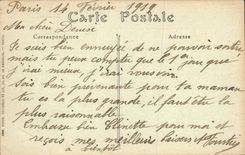 Paris 14 Février 1919
Carte Postale
Ma chère
Correspondance
Adresse
Je suis bien ennuyée de ne pouvoir sortir
mais tu peux compter que le 1er jour que
j'irai mieux, j'irai vous voir.
Sois bien prévenante pour ta maman
tu es la plus grande, il faut être la
plus raisonnable
Embrasse bien Ginette pour moi et
reçois mes meilleurs baisers
à bientôt